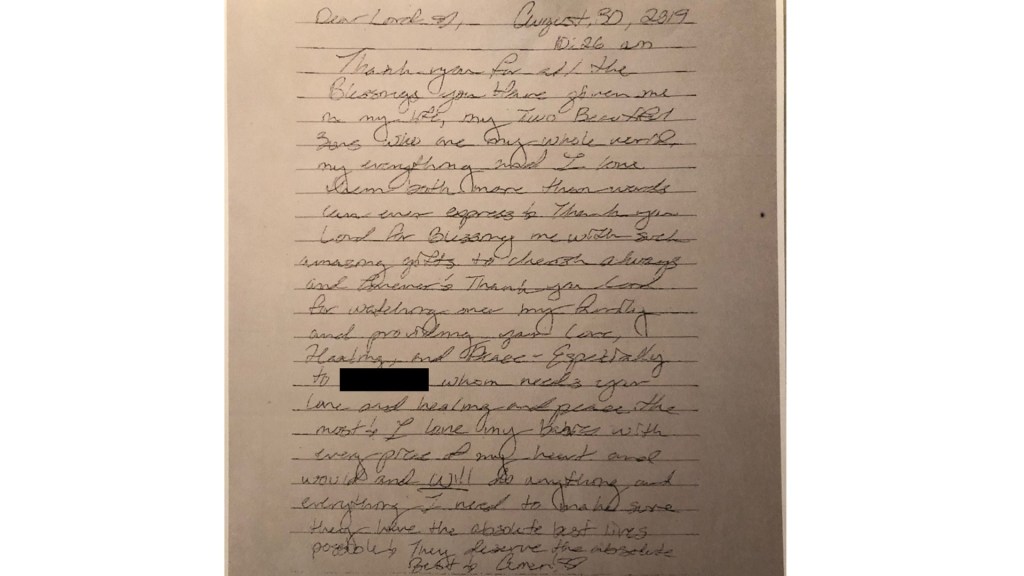 Dear Lord, August, 30, 2019
10:26 am
Thank you for all the
Blessings you have given me
in my life, my Two Beautiful
Sons who are my whole world,
my everything and I love
them both more than words
can ever express Thank you
Lord for Blessing me with such
amazing gifts to cherish always
and forever Thank you Lord
for watching over my family
and providing your Love,
Healing, and Peace - Especially
to whom needs your
love and healing and peace the
most I love my Babies with
every piece of my heart and
would and Will do anything and
everything I need to make sure
they have the absolute best lives
possible They deserve the absolute
Best Amen